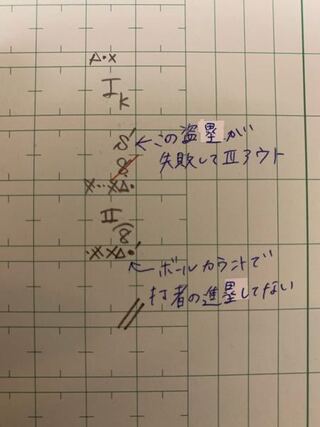 △・×
I K
S'
8
←この盗塁が
失敗してⅢアウト
×・・××△・
Ⅱ
8
・××△・'
←ボールカウントで
打者の進塁してない
//